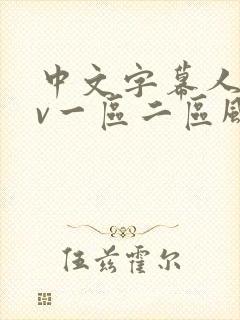 中文字幕人
v一區二區風
伍兹霍尔